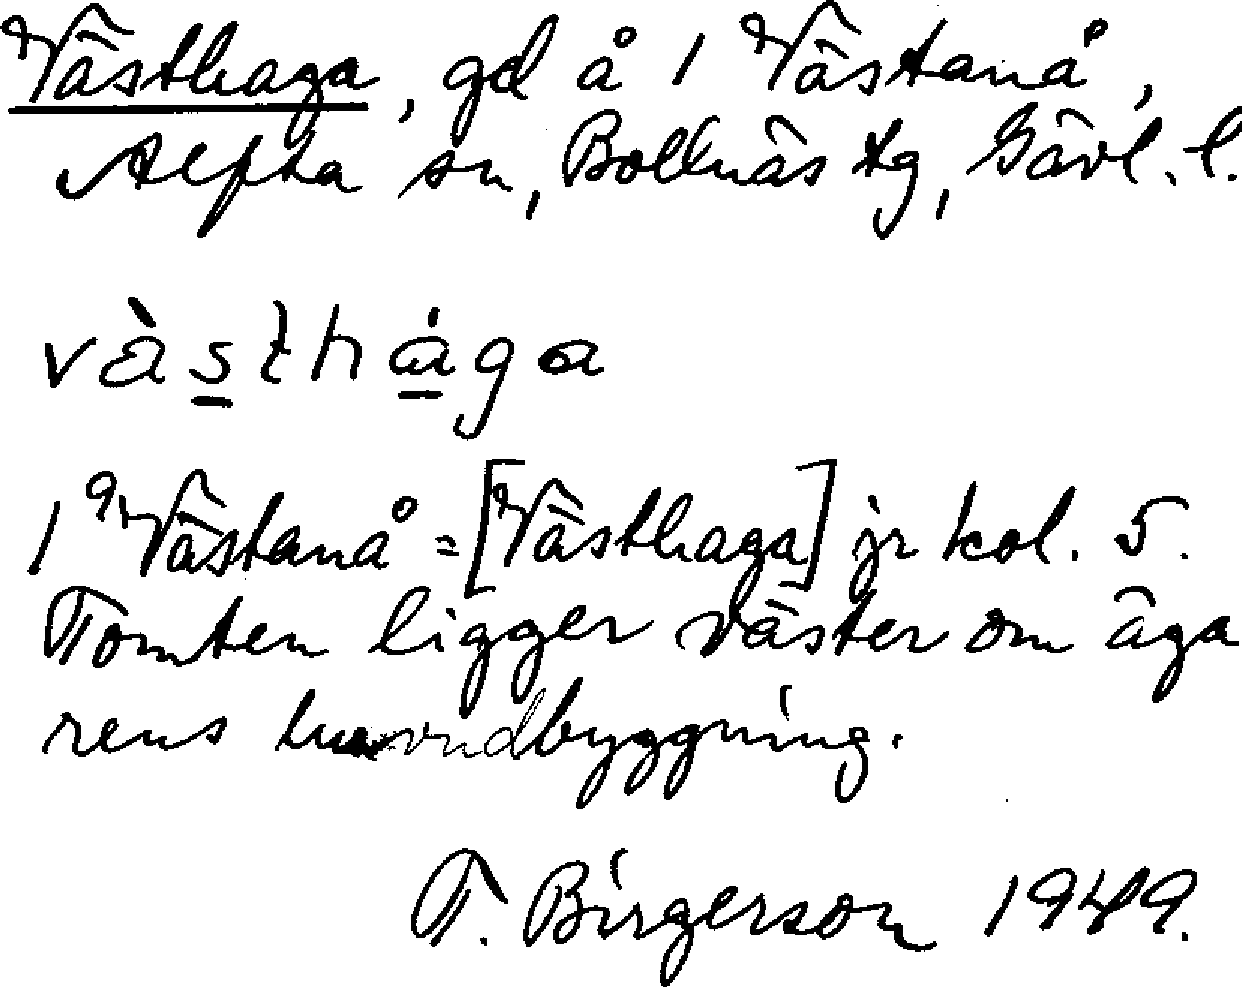 Västhaga, gd å 1 Västanå,
Alfta sn, Bollnäs tg, Gävl. l.
vàsthága
1⁹ Västanå = [Västhaga] jr kol. 5.
Tomten ligger väster om äga
rens huvudbyggning.
T. Birgerson 1949.